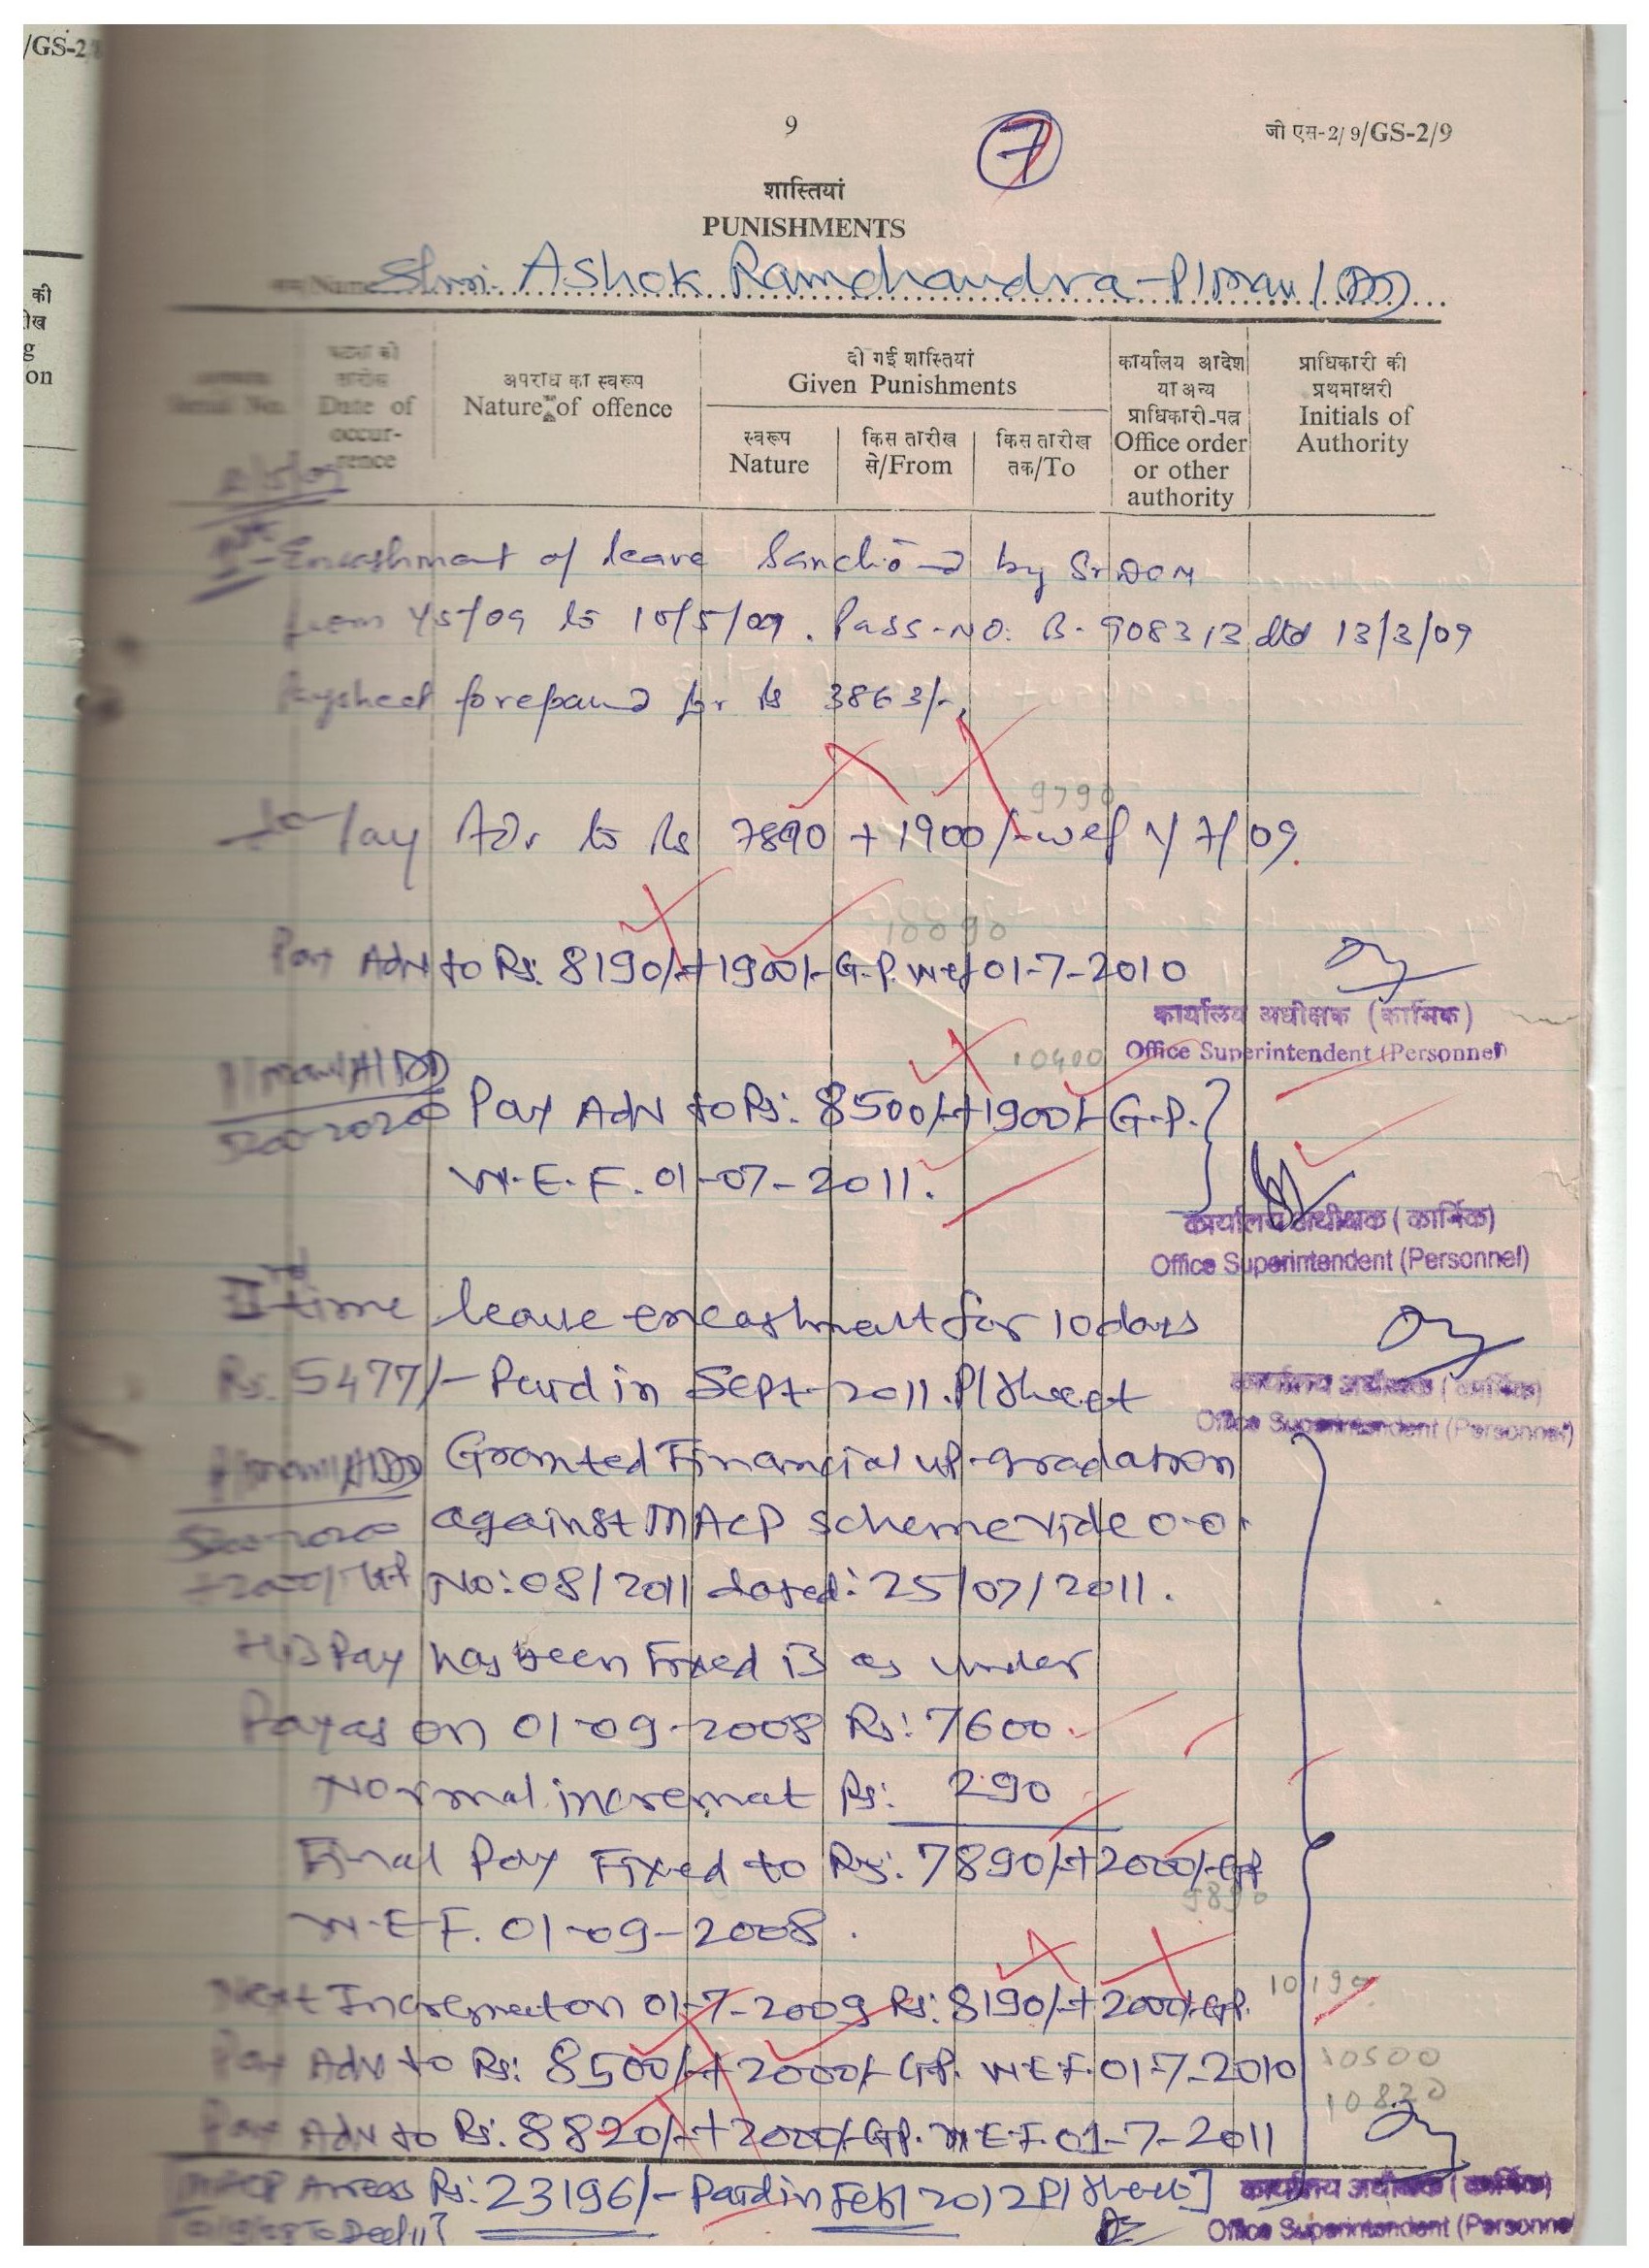 /GS-2/
9
7
जी एस-2/9/GS-2/9
शास्तियां
PUNISHMENTS
Name Shri. Ashok Ramchandra - P/man/
की
g
on
घटना की तारीख
Date of occur-rence
अपराध का स्वरूप
Nature of offence
दी गई शास्तियां
Given Punishments
स्वरूप
Nature
किस तारीख से/From
किस तारीख तक/To
कार्यालय आदेश या अन्य प्राधिकारी-पत्र
Office order or other authority
प्राधिकारी की प्रथमाक्षरी
Initials of Authority
Serial No.
Encashment of leave by Sr DOM
from 1/5/09 to 10/5/09. Pass-No: B-908313 dtd 13/3/09
Paysheet for Rs 3863/-
9790
Pay Adv to Rs 7890 + 1900/- wef 1/7/09.
10090
Pay Adv to Rs: 8190/-+1900/- G.P. wef 01-7-2010
कार्यालय अधीक्षक (कार्मिक)
Office Superintendent (Personnel)
10400
Pay Adv to Rs: 8500/-+1900/- G.P.
5200-20200
W.E.F. 01-07-2011.
कार्यालय अधीक्षक (कार्मिक)
Office Superintendent (Personnel)
II time leave encashment for 10 days
Rs. 5477/- Paid in Sept-2011. P/Sheet
कार्यालय अधीक्षक (कार्मिक)
Office Superintendent (Personnel)
Granted Financial up-gradation
5200-20200 against MACP scheme vide o.o.
+2000/- GP No: 08/2011 dated: 25/07/2011.
His Pay has been Fixed is as under
Pay as on 01-09-2008 Rs: 7600
Normal increment Rs: 290
Final Pay Fixed to Rs: 7890/-+2000/-GP
9890
W.E.F. 01-09-2008.
Next Increment on 01-7-2009 Rs: 8190/-+2000/-GP. 10190
Pay Adv to Rs: 8500/-+2000/- GP. W.E.F. 01-7-2010 10500
10820
Pay Adv to Rs: 8820/-+2000/-GP. W.E.F. 01-7-2011
MACP Arreas Rs: 23196/- Paid in Feb/2012 P/Sheet]
कार्यालय अधीक्षक (कार्मिक)
Office Superintendent (Personnel